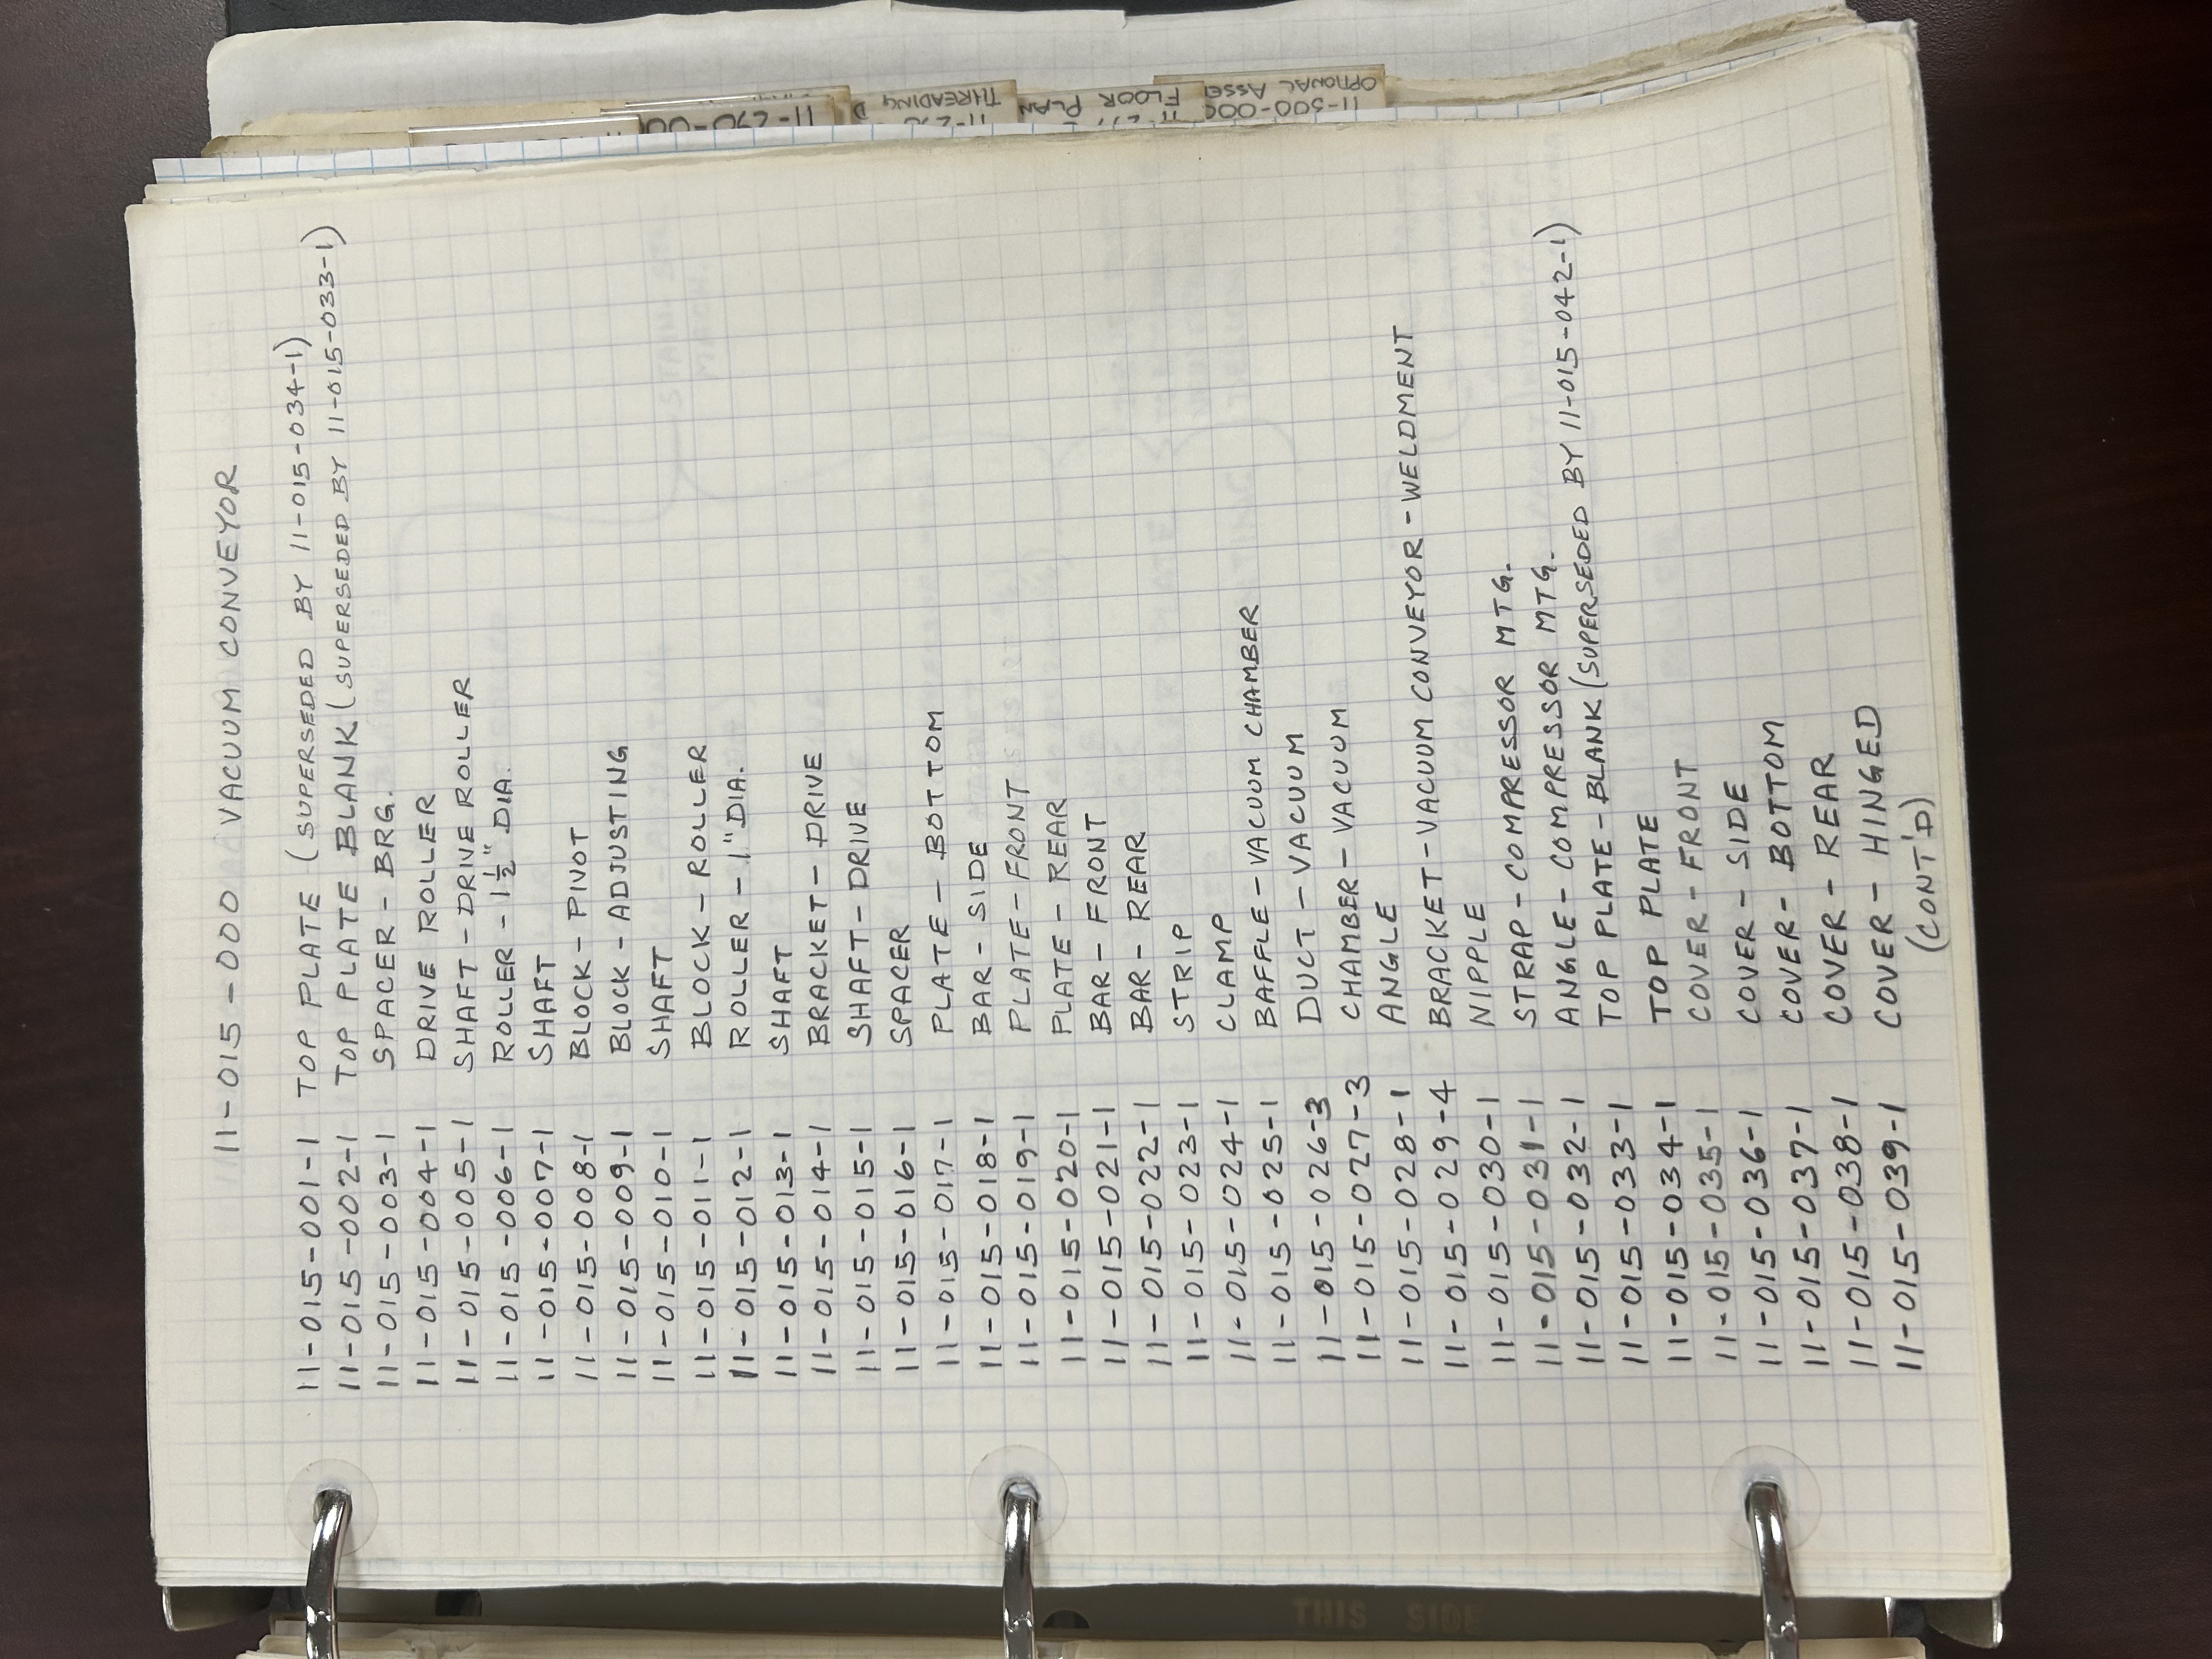 11-015-000 VACUUM CONVEYOR
11-015-001-1 TOP PLATE (SUPERSEDED BY 11-015-034-1)
11-015-002-1 TOP PLATE BLANK (SUPERSEDED BY 11-015-033-1)
11-015-003-1 SPACER - BRG.
11-015-004-1 DRIVE ROLLER
11-015-005-1 SHAFT - DRIVE ROLLER
11-015-006-1 ROLLER - 1 1/2" DIA.
11-015-007-1 SHAFT
11-015-008-1 BLOCK - PIVOT
11-015-009-1 BLOCK - ADJUSTING
11-015-010-1 SHAFT
11-015-011-1 BLOCK - ROLLER
11-015-012-1 ROLLER - 1" DIA.
11-015-013-1 SHAFT
11-015-014-1 BRACKET - DRIVE
11-015-015-1 SHAFT - DRIVE
11-015-016-1 SPACER
11-015-017-1 PLATE - BOTTOM
11-015-018-1 BAR - SIDE
11-015-019-1 PLATE - FRONT
11-015-020-1 PLATE - REAR
11-015-021-1 BAR - FRONT
11-015-022-1 BAR - REAR
11-015-023-1 STRIP
11-015-024-1 CLAMP
11-015-025-1 BAFFLE - VACUUM CHAMBER
11-015-026-3 DUCT - VACUUM
11-015-027-3 CHAMBER - VACUUM
11-015-028-1 ANGLE
11-015-029-4 BRACKET - VACUUM CONVEYOR - WELDMENT
11-015-030-1 NIPPLE
11-015-031-1 STRAP - COMPRESSOR MTG.
11-015-032-1 ANGLE - COMPRESSOR MTG.
11-015-033-1 TOP PLATE - BLANK (SUPERSEDED BY 11-015-042-1)
11-015-034-1 TOP PLATE
11-015-035-1 COVER - FRONT
11-015-036-1 COVER - SIDE
11-015-037-1 COVER - BOTTOM
11-015-038-1 COVER - REAR
11-015-039-1 COVER - HINGED
(CONT'D)
THREADING D
FLOOR PLAN
11-500-000
OPTIONAL Asse
THIS SIDE